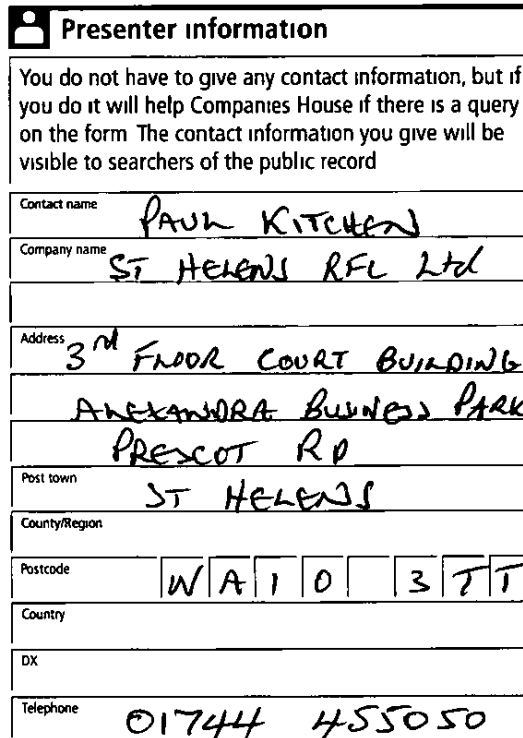 Presenter information
You do not have to give any contact information, but if
you do it will help Companies House if there is a query
on the form The contact information you give will be
visible to searchers of the public record
Contact name PAUL KITCHEN
Company name ST HELENS RFL Ltd
Address 3rd FLOOR COURT BUILDING
ALEXANDRA BUSINESS PARK
PRESCOT RD
Post town ST HELENS
County/Region
Postcode WA10 3TT
Country
DX
Telephone 01744 455050